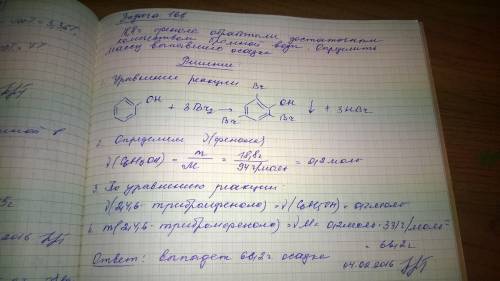 Задача 166
18,8г фенола обработали достаточным
количеством бромной воды. Определить
массу выпавшего осадка.
Решение:
Уравнение реакции
OH + 3Br₂ → Br OH Br Br ↓ + 3HBr
2. Определяем ν(фенола)
ν(C₆H₅OH) = m/M = 18,8г / 94 г/моль = 0,2 моль
3. По уравнению реакции:
ν(2,4,6-трибромфенола) = ν(C₆H₅OH) = 0,2моль
4. m(2,4,6-трибромфенола) = ν·M = 0,2моль·331г/моль
= 66,2г
Ответ: выпадет 66,2г осадка
04.02.2016
2016